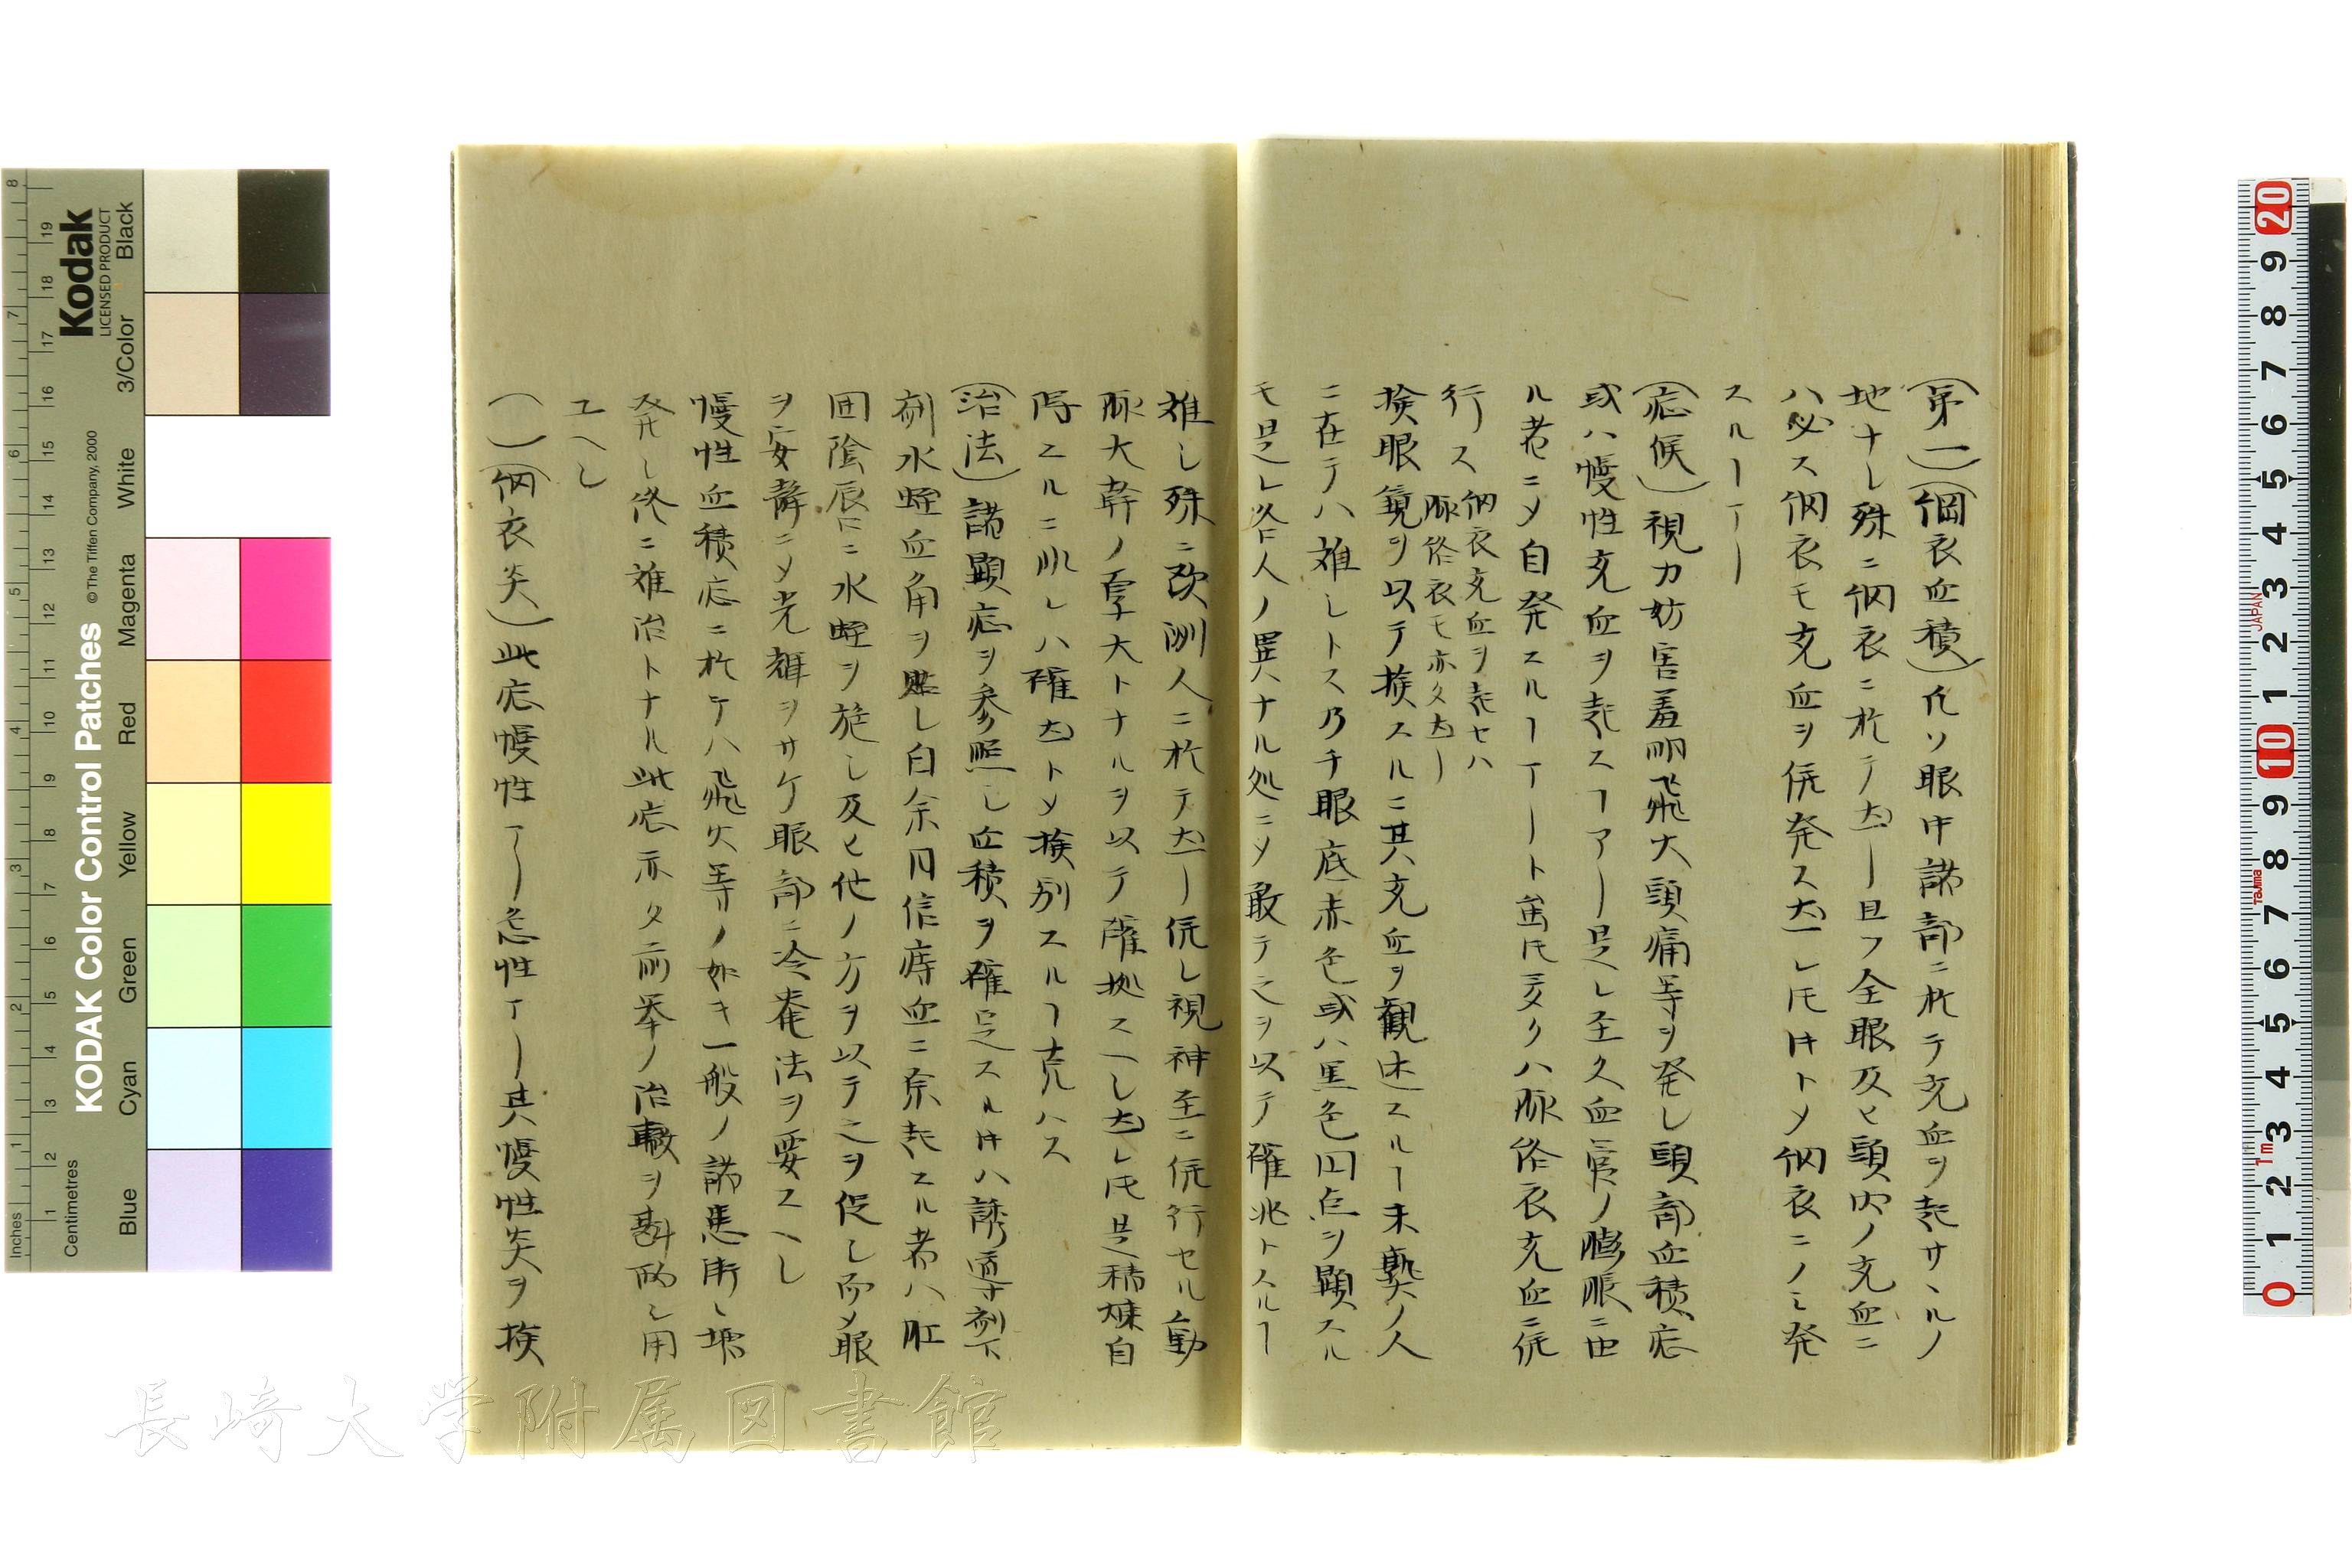 (第一)(綱衣血積)凡ソ眼中諸部ニ於テ充血ヲ起サヽルノ
地ナシ殊ニ網衣ニ於テ然ー且フ全眼及ヒ頭内ノ充血ニ
ハ必ス網衣モ充血ヲ併発ス然レ𪜈時トメ網衣ニノミ発
スルーアー
(症候)視力妨害羞明飛火頭痛等ヲ発シ頭部血積症
或ハ慢性充血ヲ起スヿアー是レ至久血管ノ膨脹ニ由
ル者ニメ自発スルヿアート雖𪜈多クハ脈絡衣充血ニ併
行ス
網衣充血ヲ起セハ
脈絡衣モ亦タ然ー
検眼鏡ヲ以テ検スルニ其充血ヲ観述スルヿ未熟ノ人
ニ在テハ難シトス乃チ眼底赤色或ハ黒色円点ヲ顕スル
モ是レ各人ノ異ナル処ニメ敢テ之ヲ以テ確兆トスルヿ
難シ殊ニ欧洲人ニ於テ然ー併シ視神至ニ併行セル動
脈大幹ノ厚大トナルヲ以テ確拠スヘシ然レ𪜈是精煉自
得スルニ非レハ確然トメ検別スルヿ克ハス
(治法)諸顕症ヲ参照シ血積ヲ確定スル時ハ誘導刺下
剤水蛭血角ヲ貼シ白余月信痔血ニ原起スル者ハ肛
囲陰唇ニ水蛭ヲ施シ及ヒ他ノ方ヲ以テ之ヲ促シ而メ眼
ヲ安静ニメ光輝ヲサケ眼部ニ冷奄法ヲ要スヘシ
慢性血積症ニ於テハ飛火等ノ如キ一般ノ諸患漸々増
発シ終ニ難治トナル此症亦タ前挙ノ治轍ヲ斟酌シ用
ユヘシ
(一)(網衣炎)此症慢性アー急性アー其慢性炎ヲ検
長崎大学附属図書館
Kodak
LICENSED PRODUCT
KODAK Color Control Patches
© The Tiffen Company, 2000
Inches
Centimetres
Blue
Cyan
Green
Yellow
Red
Magenta
White
3/Color
Black
JAPAN
Tajima
1m